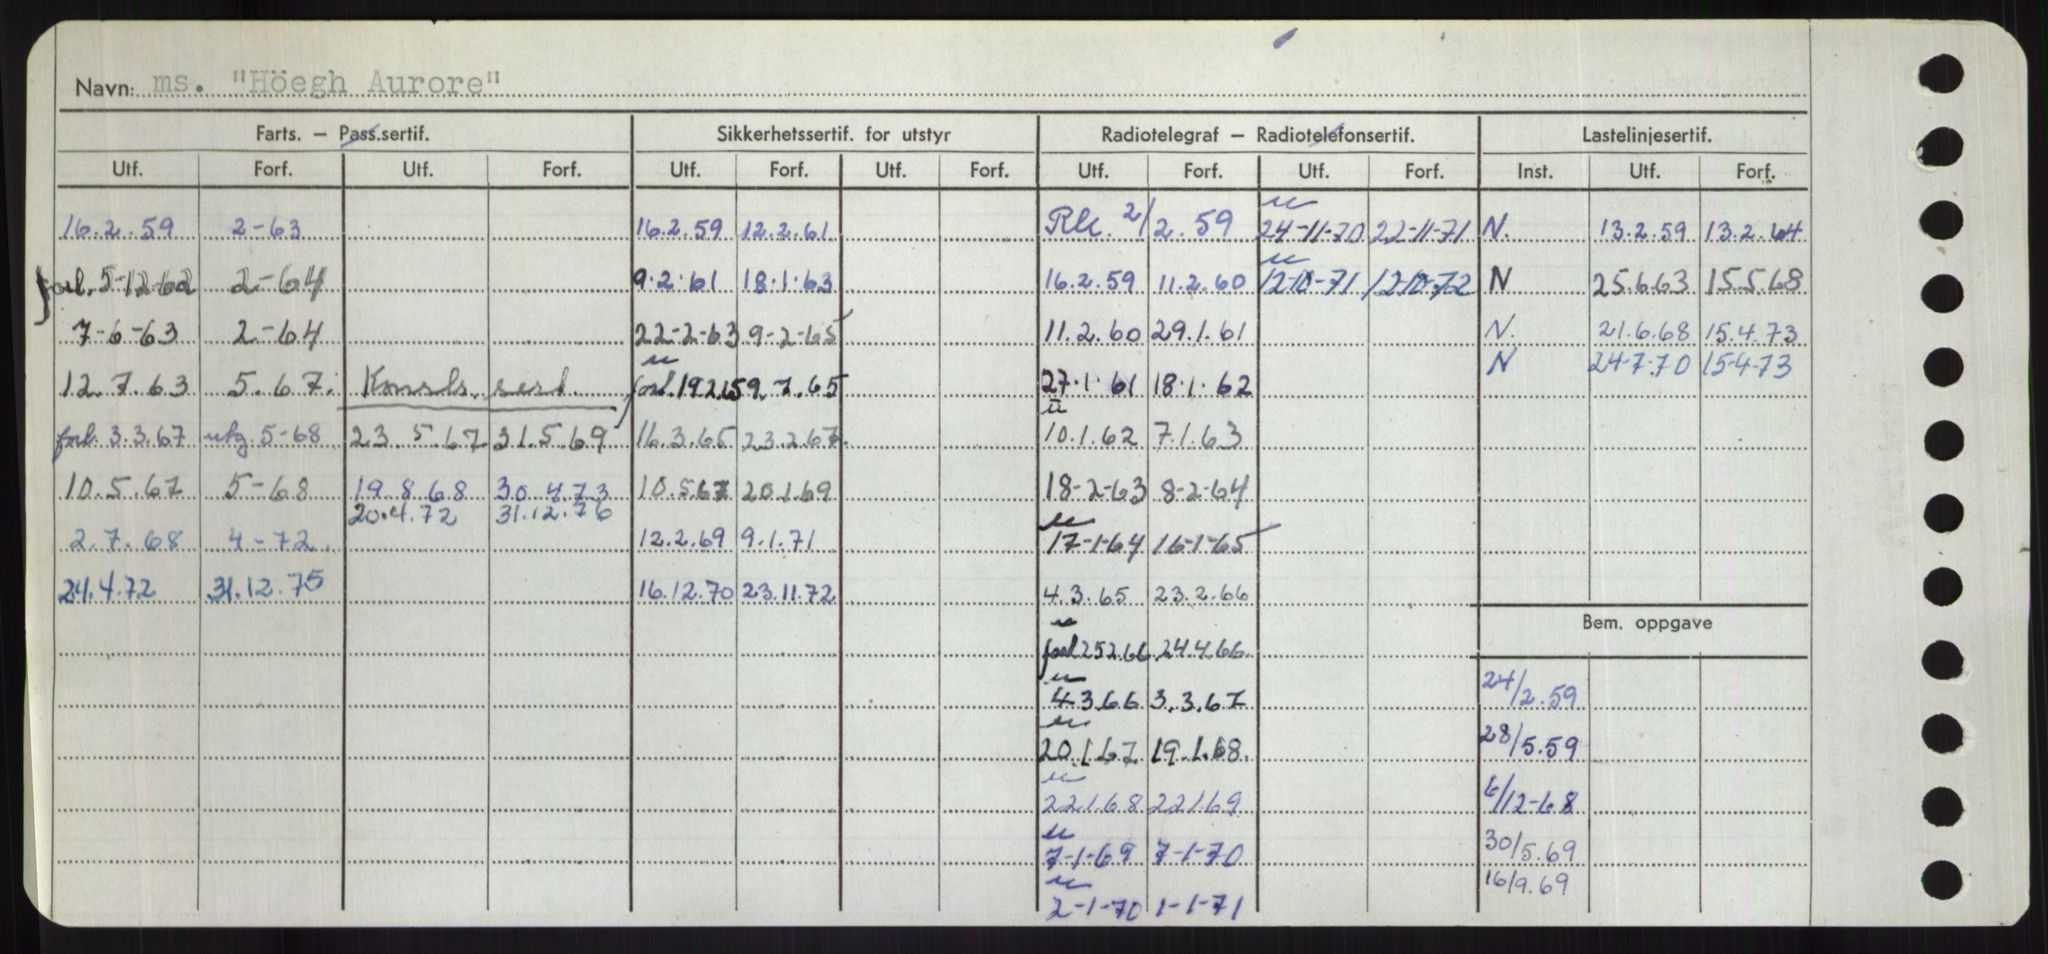 Navn: ms. "Höegh Aurore"
Farts. — Pass.sertif. Sikkerhetssertif. for utstyr Radiotelegraf — Radiotelefonsertif. Lastelinjesertif.
Utf. Forf. Utf. Forf. Utf. Forf. Utf. Forf. Utf. Forf. Utf. Forf. Inst. Utf. Forf.
16.2.59 2-63 16.2.59 12.2.61 2/2.59 24-11-70 22-11-71 N. 13.2.59 13.2.64
forl. 5-12-62 2-64 9.2.61 18.1.63 16.2.59 11.2.60 12-10-71 12-10-72 N 25.6.63 15.5.68
7-6-63 2-64 22-2-63 9-2-65 11.2.60 29.1.61 N. 21.6.68 15.4.73
N 24-7-70 15-4-73
12.7.63 5.67. Konstr. sert. forl. 19.2.65 9.7.65 27.1.61 18.1.62
forl. 3.3.67 utg 5-68 23.5.67 31.5.69 16.3.65 23.2.67 10.1.62 7.1.63
10.5.67 5-68 19.8.68 30.4.73 10.5.67 20.1.69 18-2-63 8-2-64
20.4.72 31.12.76
2.7.68 4-72. 12.2.69 9.1.71 17-1-64 16-1-65
24.4.72 31.12.75 16.12.70 23.11.72 4.3.65 23.2.66
Bem. oppgave
forl 25.2.66 24.4.66.
4.3.66 3.3.67 24/2.59
20.1.67. 19.1.68. 28/5.59
22.1.68 22.1.69 6/12-68
7-1-69 7-1-70 30/5.69
16/9.69
2-1-70 1-1-71